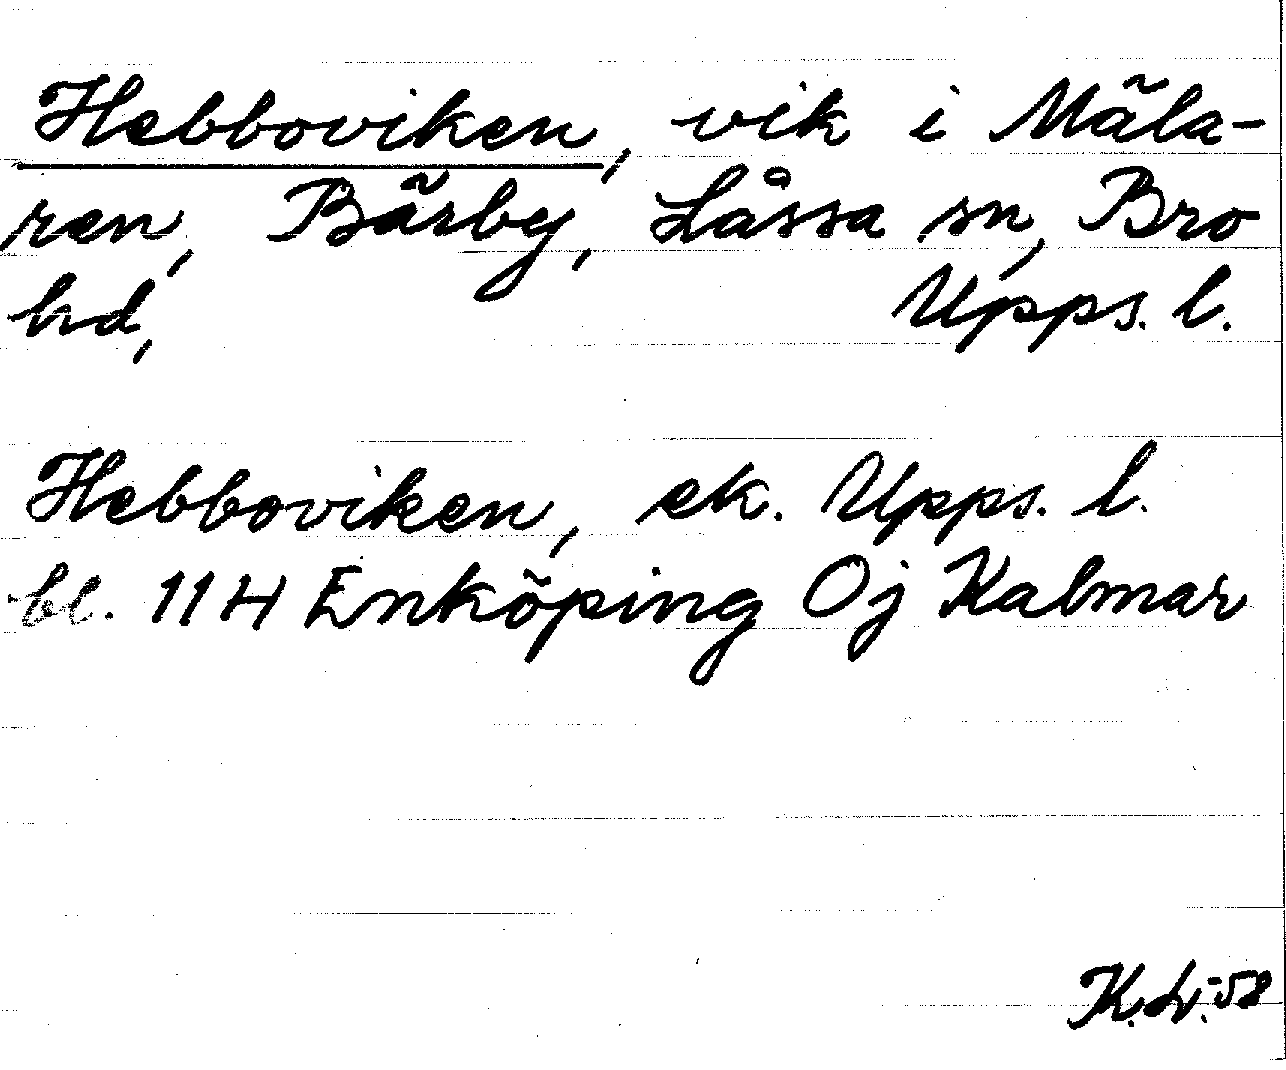 Hebboviken, vik i Mäla-
ren, Bärby, Låssa sn, Bro
hd, Upps. l.
Hebboviken, ek. Upps. l.
bl. 11 H Enköping Oj Kalmar
K.L. -58